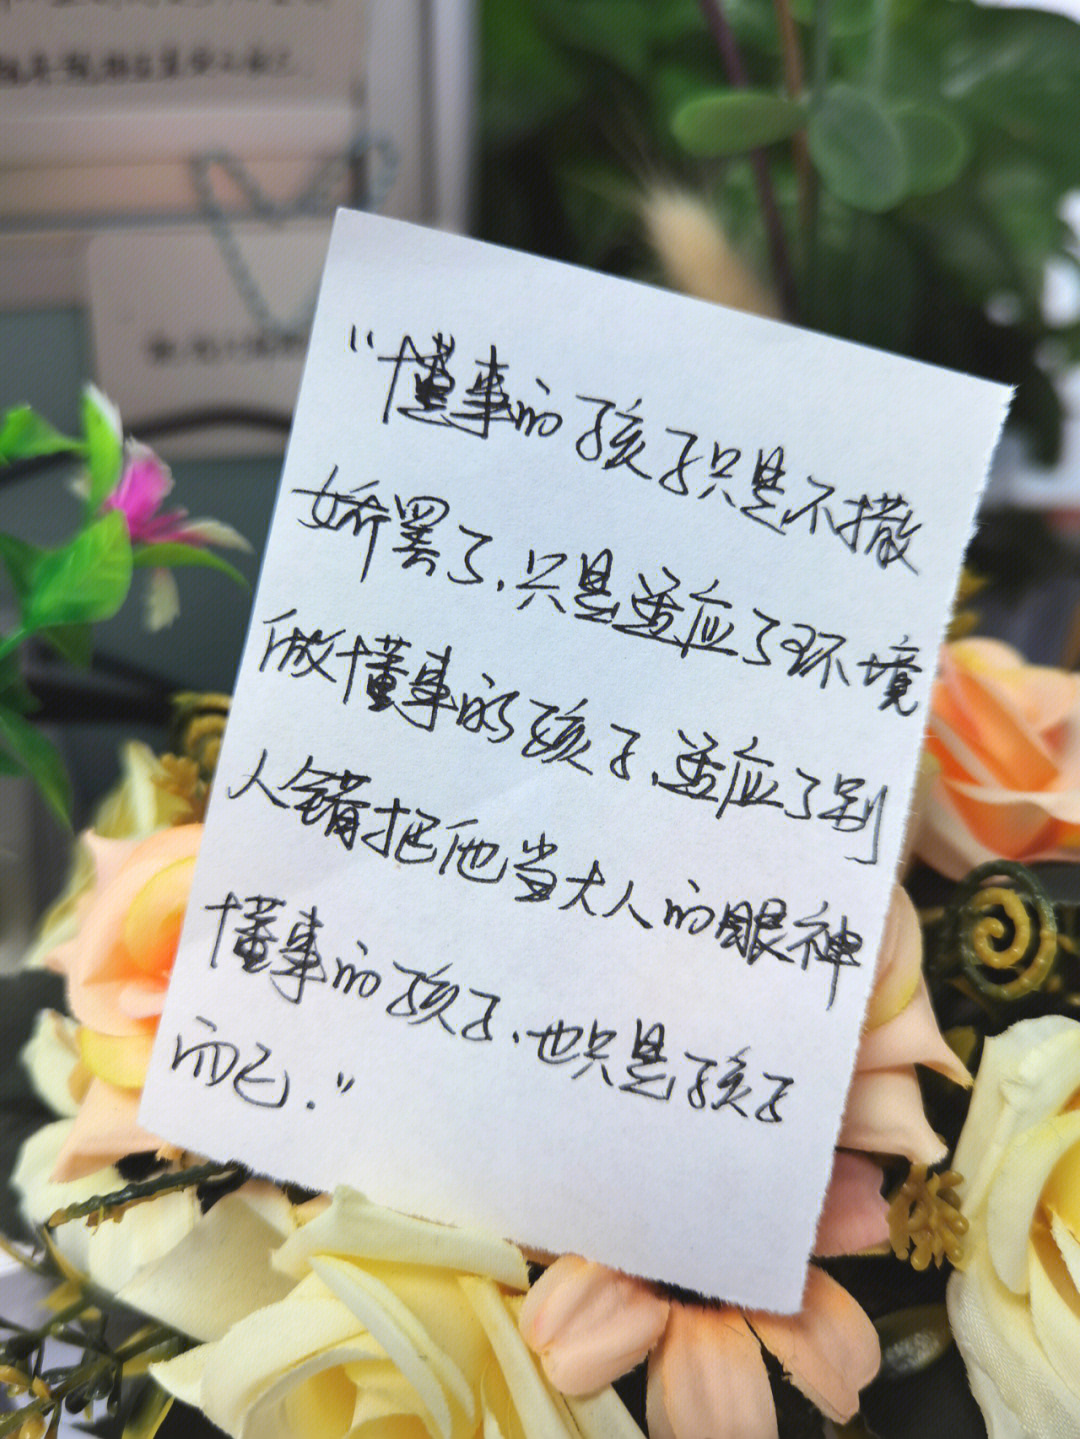 “懂事的孩子只是不撒
娇罢了,只是适应了环境
做懂事的孩子,适应了别
人错把他当大人的眼神
懂事的孩子,也只是孩子
而已.”